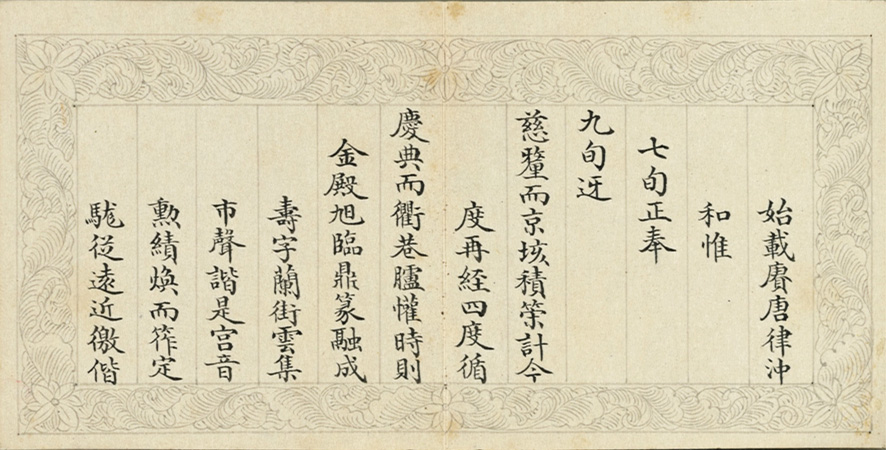 始載賡唐律沖
和惟
七旬正奉
九旬迓
慈釐而京垓積筭計今
度再經四度循
慶典而衢巷臚懽時則
金殿旭臨鼎篆融成
壽字蘭街雲集
市聲諧是宮音
勲績煥而筰定
駹從遠近徼偕